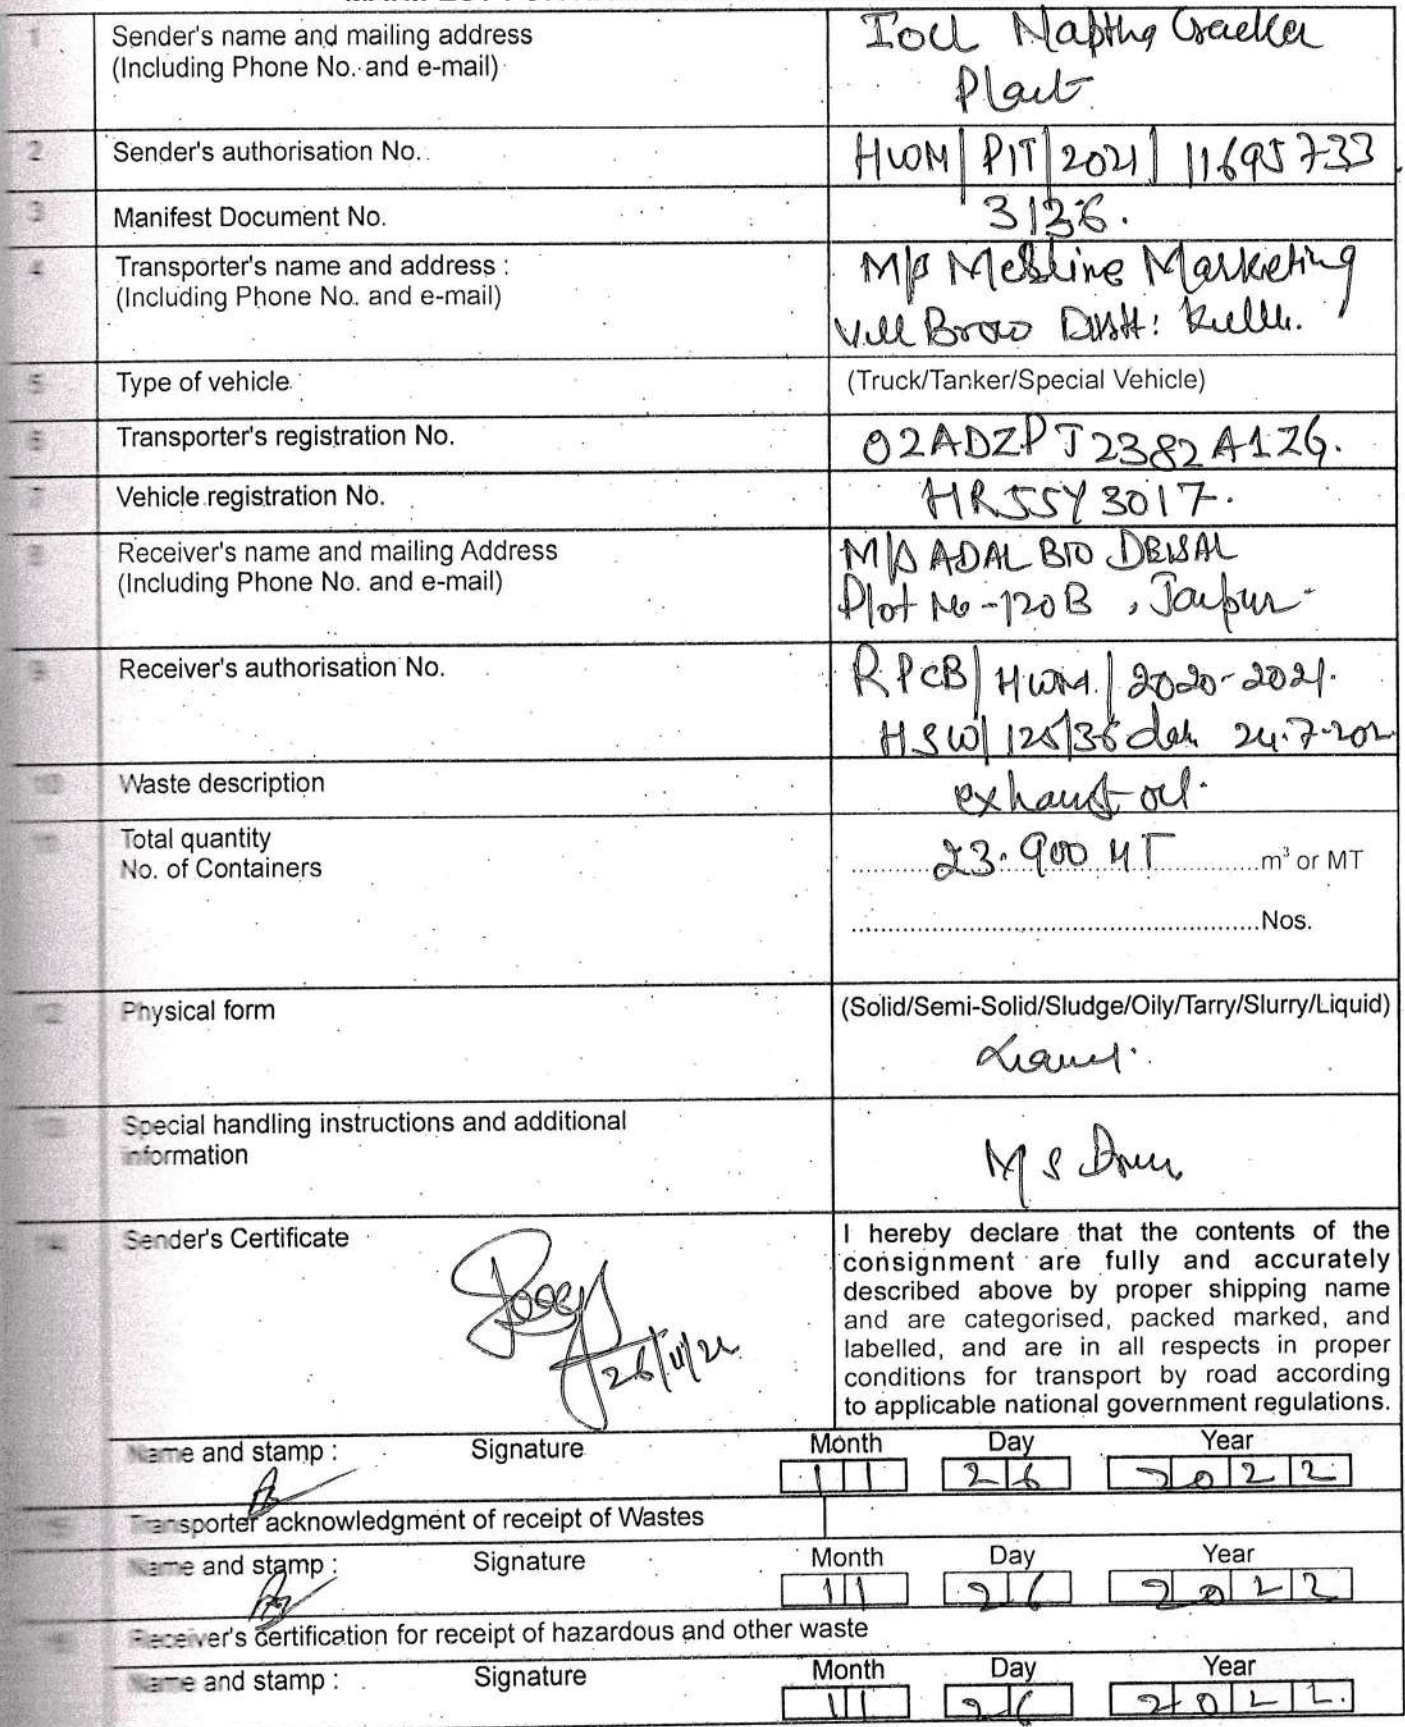 1 Sender's name and mailing address Iocl Naptha Cracker
(Including Phone No. and e-mail) Plant
2 Sender's authorisation No. HWM/PIT/2021/11695733
3 Manifest Document No. 3136.
4 Transporter's name and address : Marketing
(Including Phone No. and e-mail) Vill Distt:
5 Type of vehicle (Truck/Tanker/Special Vehicle)
6 Transporter's registration No. 02ADZPJ2382A1ZG.
7 Vehicle registration No. HR55Y3017.
8 Receiver's name and mailing Address M/s ADAL BIO
(Including Phone No. and e-mail) Plot No-120B, Jaipur
9 Receiver's authorisation No. RPCB/HWM/2020-2021.
HSW/ 24.7.202
10 Waste description exhaust oil.
11 Total quantity 23.900 MT m³ or MT
No. of Containers
Nos.
12 Physical form (Solid/Semi-Solid/Sludge/Oily/Tarry/Slurry/Liquid)
13 Special handling instructions and additional
information M S
14 Sender's Certificate I hereby declare that the contents of the
consignment are fully and accurately
described above by proper shipping name
and are categorised, packed marked, and
labelled, and are in all respects in proper
conditions for transport by road according
to applicable national government regulations.
26/11/22
Name and stamp : Signature Month Day Year
11 26 2022
Transporter acknowledgment of receipt of Wastes
Name and stamp : Signature Month Day Year
11 26 2022
Receiver's certification for receipt of hazardous and other waste
Name and stamp : Signature Month Day Year
11 26 2022